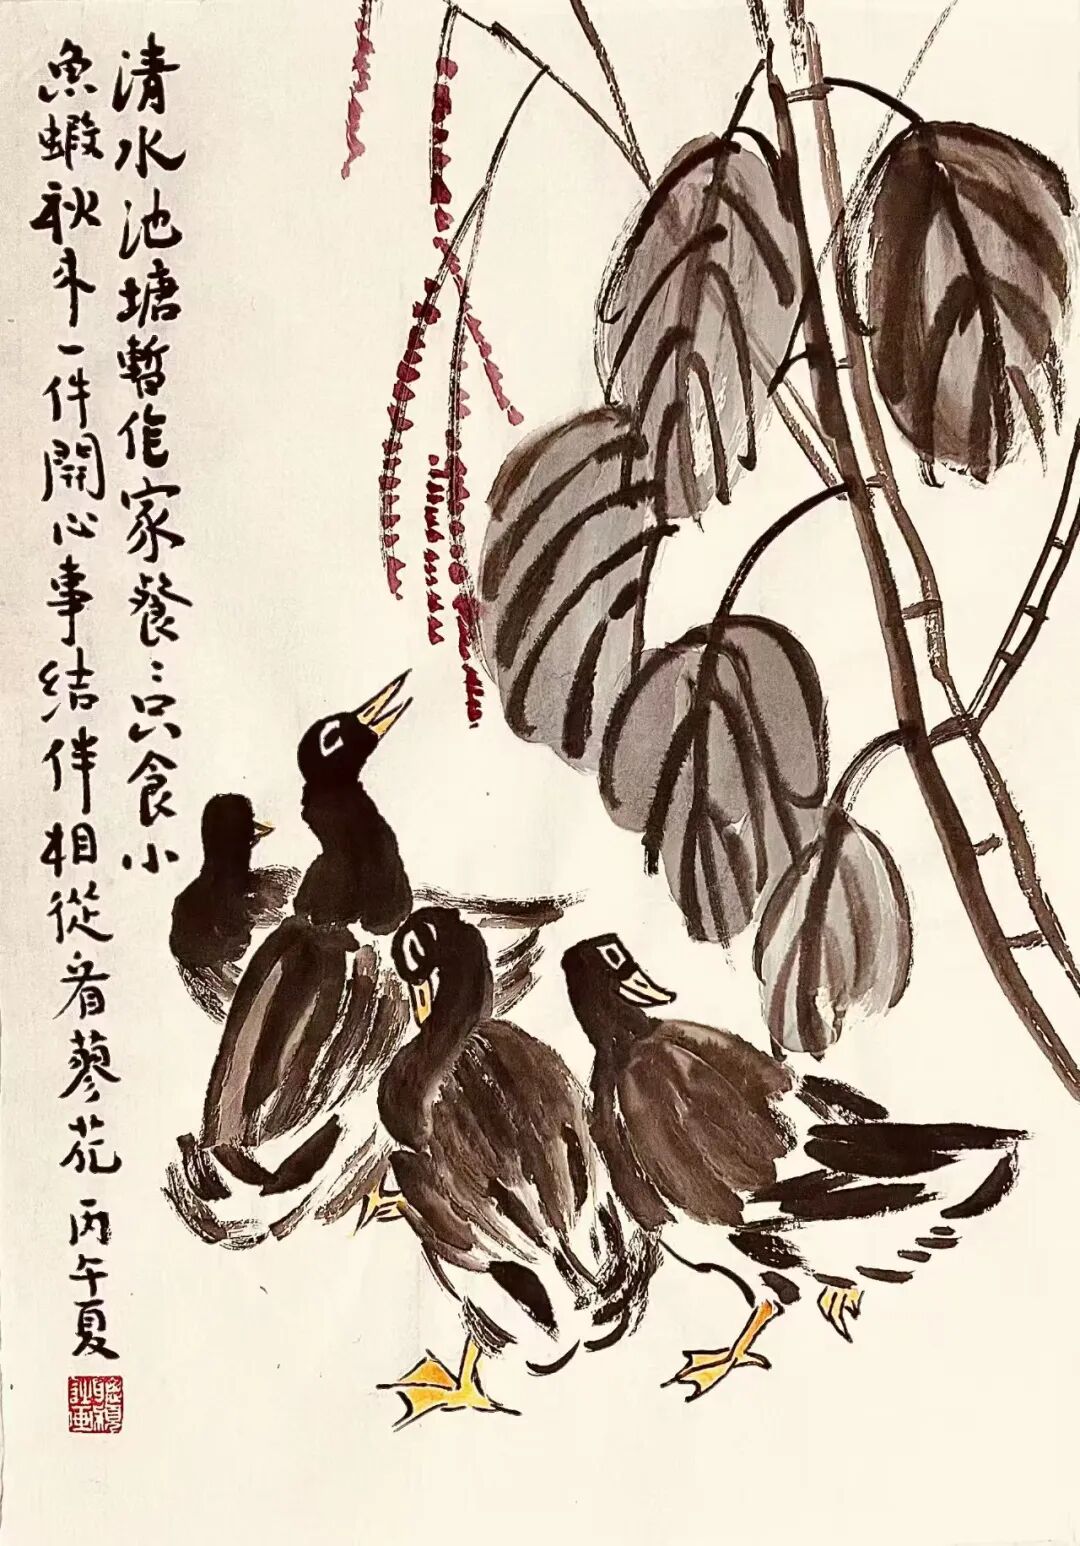 清水池塘暫作家餐〻只食小
魚蝦秋来一件開心事結伴相從看蓼花
丙午夏